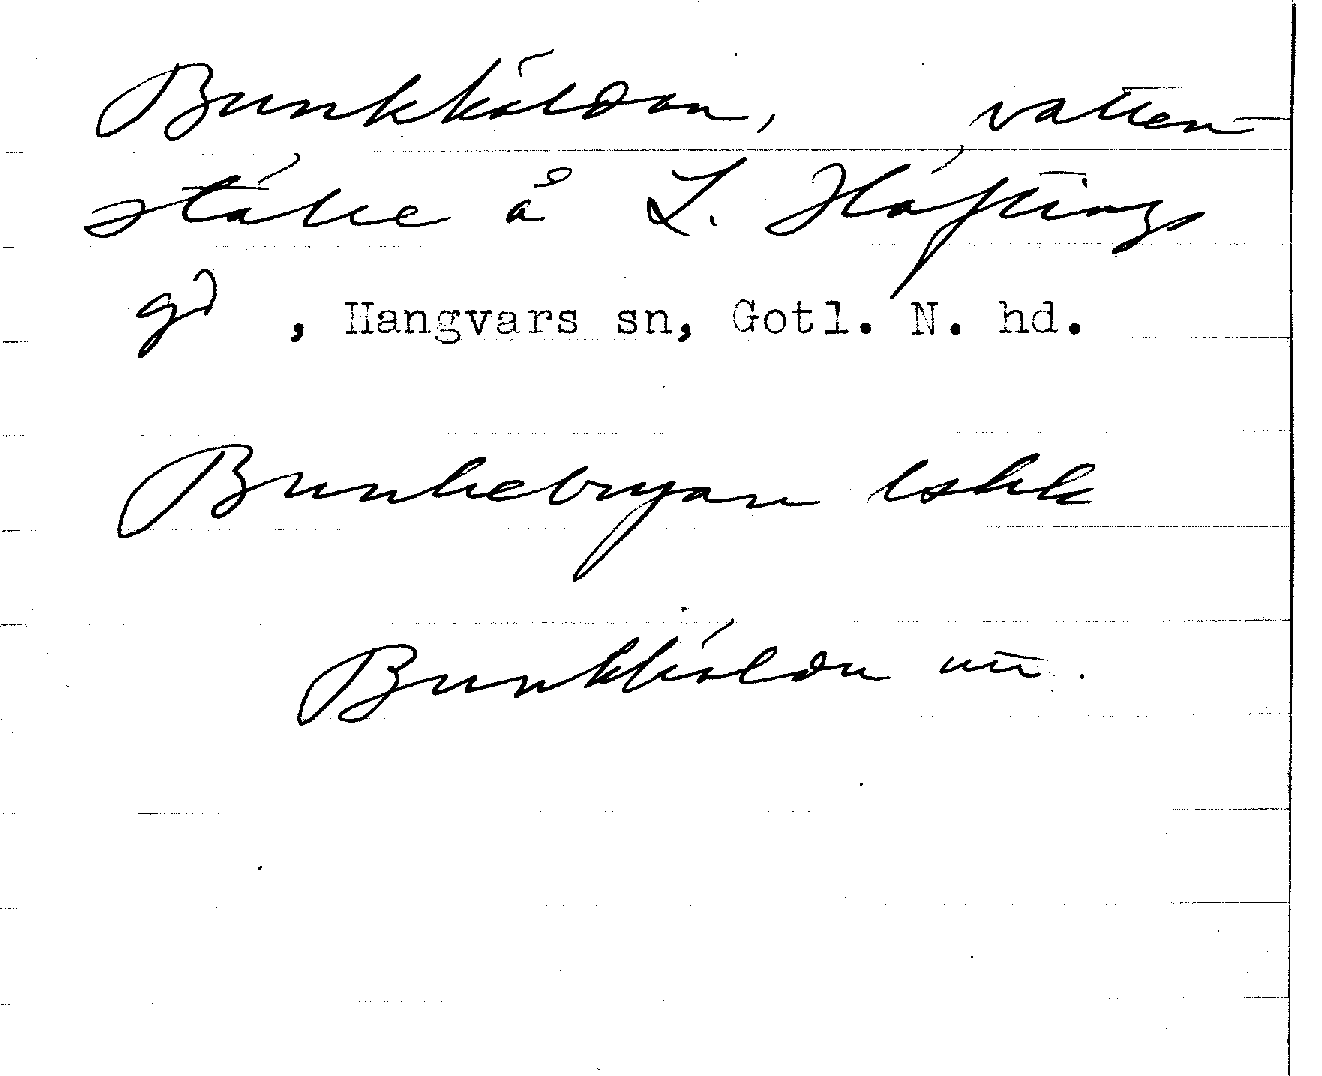 Bunkkäldan, vatten-
ställe å L. Häftings
gd, Hangvars sn, Gotl. N. hd.
Bunkebryan lskk
Bunkkäldu un.